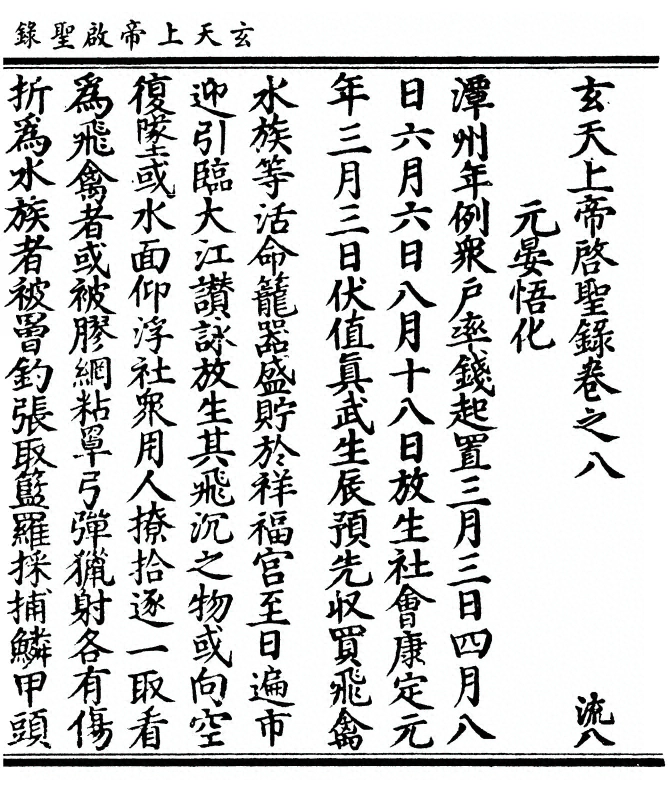 玄天上帝啟聖錄
玄天上帝啓聖錄卷之八
流八
元晏悟化
潭州年例衆戶率錢起置三月三日四月八
日六月六日八月十八日放生社會康定元
年三月三日伏值眞武生辰預先収買飛禽
水族等活命籠器盛貯於祥福宫至日遍市
迎引臨大江讃詠放生其飛沉之物或向空
復墜或水面仰浮社衆用人撩拾逐一取看
為飛禽者或被膠網粘罩弓彈獵射各有傷
折為水族者被罾釣張取籃羅採捕鱗甲頭